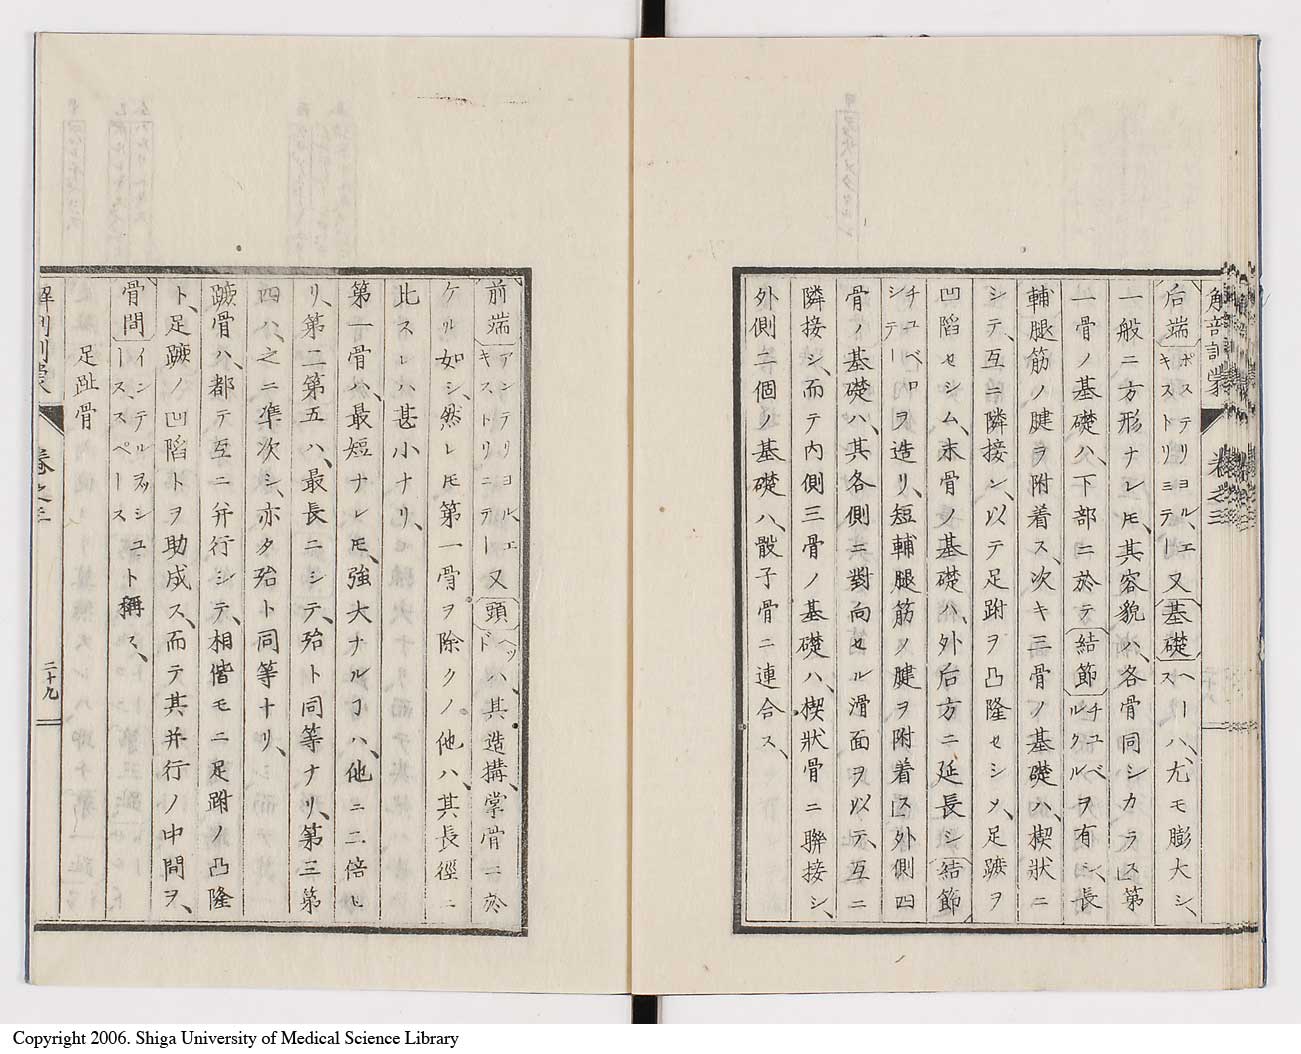 解剖訓蒙 卷之三
后端ポステリヨル、エキストリミテー又基礎ベースハ、尤モ膨大シ、
一般ニ方形ナレ𪜈、其容貌ハ、各骨同シカラス、第
一骨ノ基礎ハ、下部ニ於テ結節チユベルクルヲ有シ、長
輔腿筋ノ腱ヲ附着ス、次キ三骨ノ基礎ハ、楔狀ニ
シテ、互ニ隣接シ、以テ足跗ヲ凸隆セシメ、足蹠ヲ
凹陷セシム、末骨ノ基礎ハ、外后方ニ延長シ結節
チユベロシテーヲ造リ、短輔腿筋ノ腱ヲ附着ス、外側四
骨ノ基礎ハ、其各側ニ對向セル滑面ヲ以テ、互ニ
隣接シ、而テ内側三骨ノ基礎ハ、楔狀骨ニ聯接シ、
外側二個ノ基礎ハ、骰子骨ニ連合ス、
前端アンテリヨル、エキストリミテー又頭ヘッドハ、其造搆、掌骨ニ於
ケル如シ、然レ𪜈第一骨ヲ除クノ他ハ、其長徑ニ
比スレハ甚小ナリ、
第一骨ハ、最短ナレ𪜈、強大ナルヿハ、他ニ二倍セ
リ、第二第五ハ、最長ニシテ、殆ト同等ナリ、第三第
四ハ、之ニ凖次シ、亦タ殆ト同等ナリ、
蹠骨ハ、都テ互ニ幷行シテ、相偕モニ足跗ノ凸隆
ト、足蹠ノ凹陷トヲ助成ス、而テ其幷行ノ中間ヲ、
骨間インテルヲッシユース、スペースト稱ス、
足趾骨
解剖訓蒙 卷之三 二十九
Copyright 2006. Shiga University of Medical Science Library